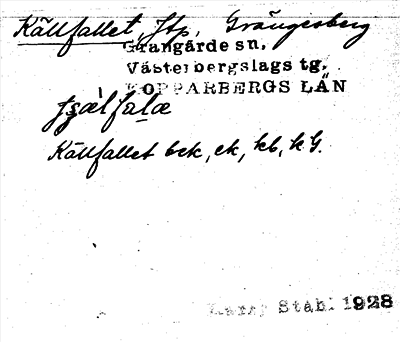 Källfallet, Jtp, Grängesberg
Grangärde sn.
Västerbergslags tg.
KOPPARBERGS LÄN
Källfallet bck, ek, kb, kG.
Harry Ståhl 1928